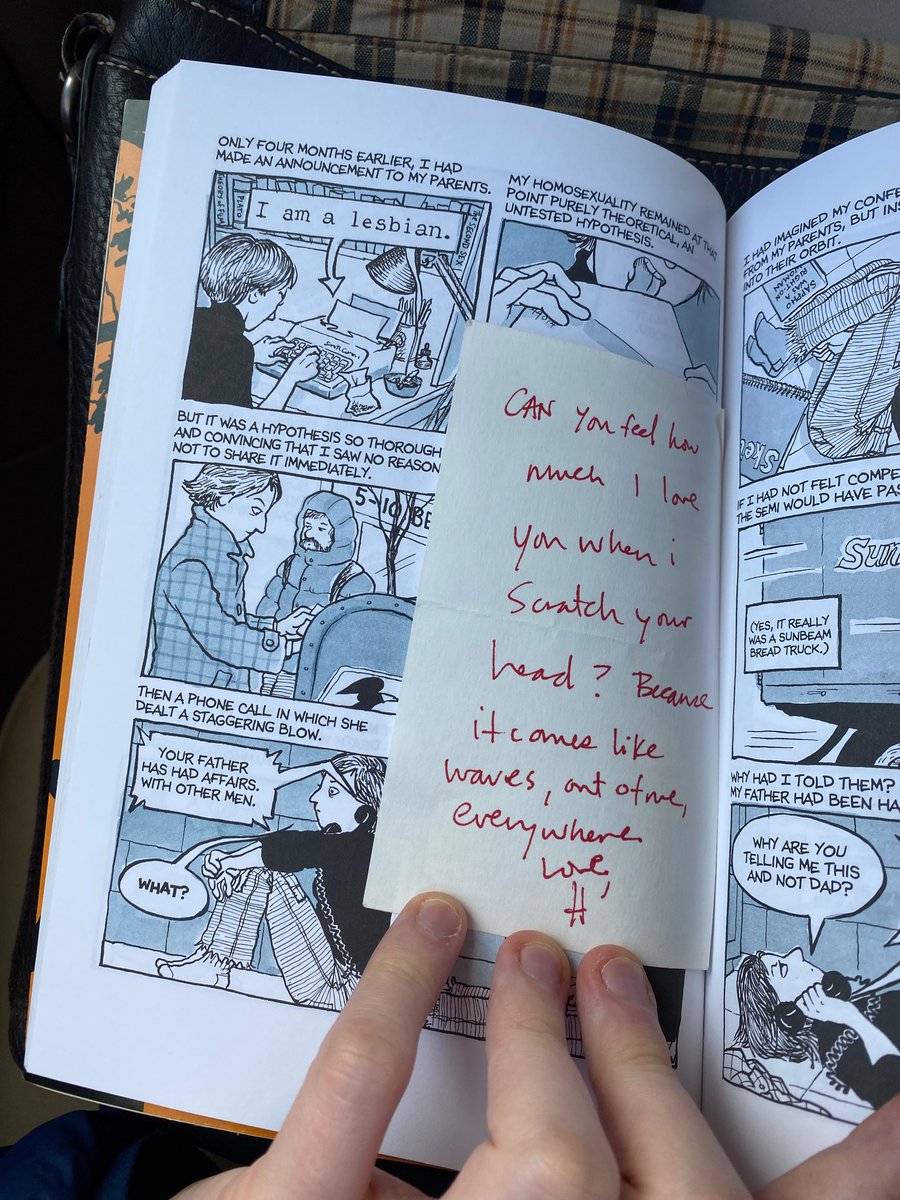 ONLY FOUR MONTHS EARLIER, I HAD
MADE AN ANNOUNCEMENT TO MY PARENTS.
PLATO
I am a lesbian.
Smith Corona
MY HOMOSEXUALITY REMAINED AT THAT
POINT PURELY THEORETICAL, AN
UNTESTED HYPOTHESIS.
BUT IT WAS A HYPOTHESIS SO THOROUGH
AND CONVINCING THAT I SAW NO REASON
NOT TO SHARE IT IMMEDIATELY.
5-10 BE
THEN A PHONE CALL IN WHICH SHE
DEALT A STAGGERING BLOW.
YOUR FATHER
HAS HAD AFFAIRS.
WITH OTHER MEN.
WHAT?
CAN you feel how
much I love
you when i
Scratch your
head? Because
it comes like
waves, out of me,
everywhere
Love,
H
I HAD IMAGINED MY CONFE
FROM MY PARENTS, BUT INS
INTO THEIR ORBIT.
SAPPHO
WAS A
RIGHT-ON
WOMAN
Sket
IF I HAD NOT FELT COMPE
THE SEMI WOULD HAVE PAS
Sun
(YES, IT REALLY
WAS A SUNBEAM
BREAD TRUCK.)
WHY HAD I TOLD THEM?
MY FATHER HAD BEEN HA
WHY ARE YOU
TELLING ME THIS
AND NOT DAD?